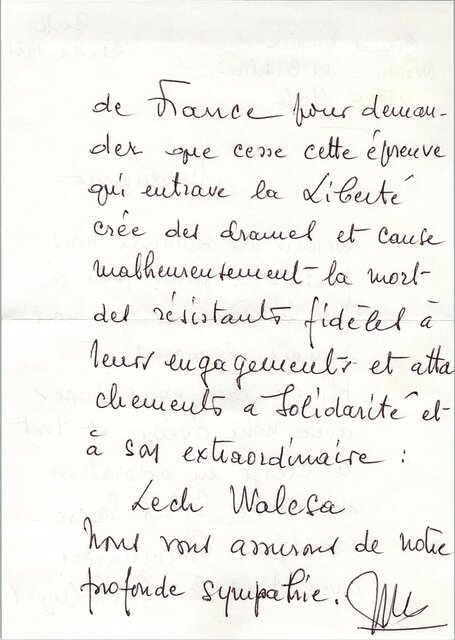 de France pour deman-
der que cesse cette épreuve
qui entrave la Liberté
crée des drames et cause
malheureusement la mort
des résistants fidèles à
leurs engagements et atta
chements a Solidarité et
à son extraordinaire :
Lech Walesa
Nous vous assurons de notre
profonde sympathie.